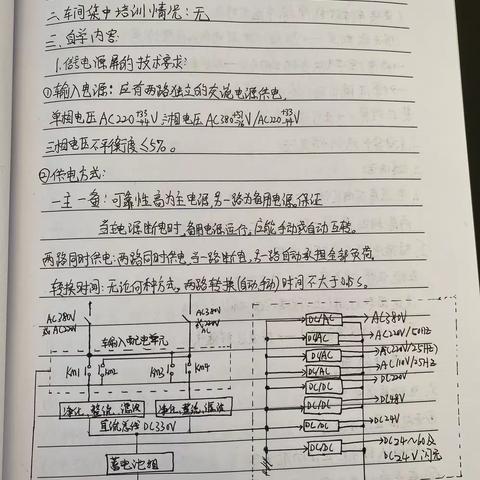 二、车间集中培训情况：无
三、自学内容：
1.信号电源屏的技术要求：
①输入电源：应有两路独立的交流电源供电，
单相电压AC220+33-44V 三相电压AC380+57-76V/AC220+33-44V
三相电压不平衡度≤5%。
②供电方式：
一主一备：可靠性高为主电源，另一路为备用电源，保证
当主电源断电时，备用电源运行，应能手动或自动互转。
两路同时供电：两路同时供电，当一路断电，另一路自动承担全部负荷。
转换时间：无论何种方式，两路转换(自动、手动)时间不大于0.5s。
AC380V
或AC220V
AC380V
或220V
AC
输入配电单元
KM1
KM2
KM3
KM4
净化、整流、滤波
净化、整流、滤波
直流总线DC330V
蓄电池组
DC/AC
AC380V
DC/AC
AC220V/50HZ
DC/AC
AC220V/25HZ
DC/AC
AC110V/25HZ
DC/DC
DC220V
DC/DC
DC48V
DC/DC
DC24V
DC/DC
DC24~60及
DC24V闪光